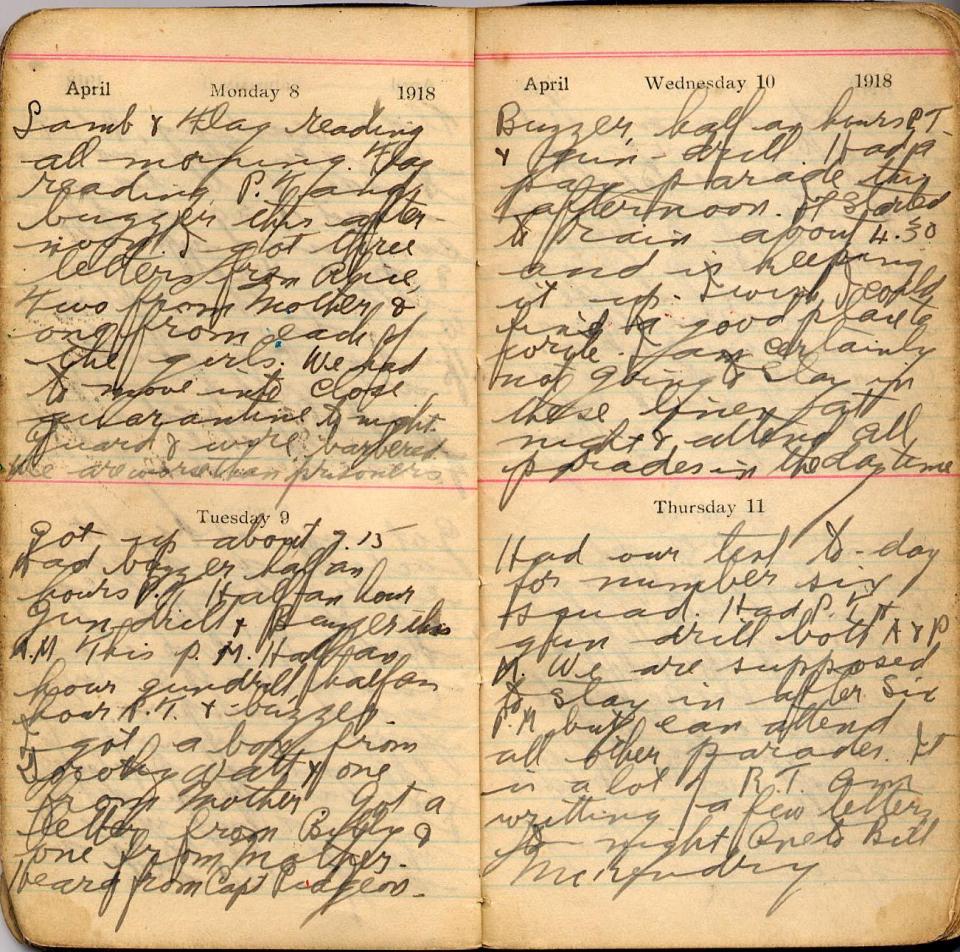 April Monday 8 1918
Lamb & Flag reading
all morning. Flag
reading P.T. and
buzzer this after-
noon. I got three
letters from
two from Mother &
one from each of
the girls. We had
to move into close
quarantine to night.
Guard & wire barbered.
We are worse than prisoners
Tuesday 9
Got up about 7.15
Had buzzer half an
hours P.T. Half an hour
Gun drill & Buzzer this
A.M. This P.M. Half an
hour gundrill half an
hour P.T. & buzzer.
I got a box from
Dorothy Watt & one
from Mother Got a
letter from Billy &
one from Mother.
heard from Capt Pidgeon.
April Wednesday 10 1918
Buzzer, half an hours P.T.
& gun-drill. Had a
pay parade this
afternoon. It started
to rain about 4.30
and is keeping
it up. I wish I could
find a good place to
write. I am certainly
not going to stay in
these lines at
night & attend all
parades in the daytime
Thursday 11
Had our test to-day
for number six
squad. Had P.T. &
gun drill both A & P
M. We are supposed
to stay in after Six
P.M but can attend
all other parades. It
is a lot of R.T. am
writting a few letters
to night One to Bill